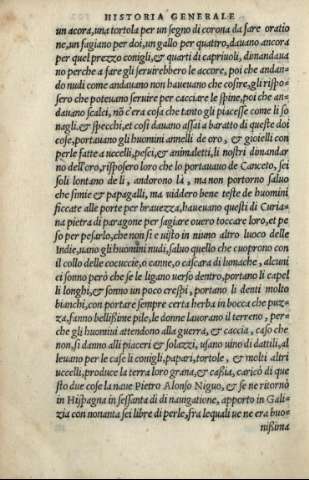 HISTORIA GENERALE
un acora, una tortola per un segno di corona da fare oratio
ne, un fagiano per doi, un gallo per quattro, dauano ancora
per quel prezzo conigli, & quarti di capriuoli, dimandaua
no perche a fare gli seruirebbero le accore, poi che andan-
do nudi come andauano non haueuano che cosire, gli rispo-
sero che poteuano seruire per cacciare le spine, poi che an-
dauano scalci, nō c'era cosa che tanto gli piacesse come li so
nagli, & specchi, et cosi dauano assai a baratto di queste doi
cose, portauano gli huomini annelli de oro, & gioielli con
perle fatte a uccelli, pesci, & animaletti, li nostri dimandar
no dell'oro, risposero loro che lo portauauo de Canceto, sei
soli lontano de lì, andorono là, ma non portorno saluo
che simie & papagalli, ma uiddero bene teste de huomini
ficcate alle porte per brauezza, haueuano questi di Curia-
na pietra di paragone per sagiare ouero toccare loro, et pe
so per pesarlo, che non si e uisto in niuno altro luoco delle
Indie, uano gli huomini nudi, saluo quello che cuoprono con
il collo delle cocuccie, o canne, o cascara di lumache, alcuni
ci sonno però che se le ligano uerso dentro, portano li capel
li longhi, & sonno un poco crespi, portano li denti molto
bianchi, con portare sempre certa herba in bocca che puz-
za, fanno bellissime pile, le donne lauorano il terreno, per-
che gli huomini attendono alla guerra, & caccia, caso che
non, si danno alli piaceri & solazzi, usano uino di dattili, al
leuano per le case li conigli, papari, tortole, & molti altri
uccelli, produce la terra loro grana, & cassia, caricò di que
sto due cose la naue Pietro Alonso Niguo, & se ne ritornò
in Hispagna in sessanta di di nauigatione, apporto in Gali-
zia con nonanta sei libre di perle, fra lequali ue ne era buo-
nissima